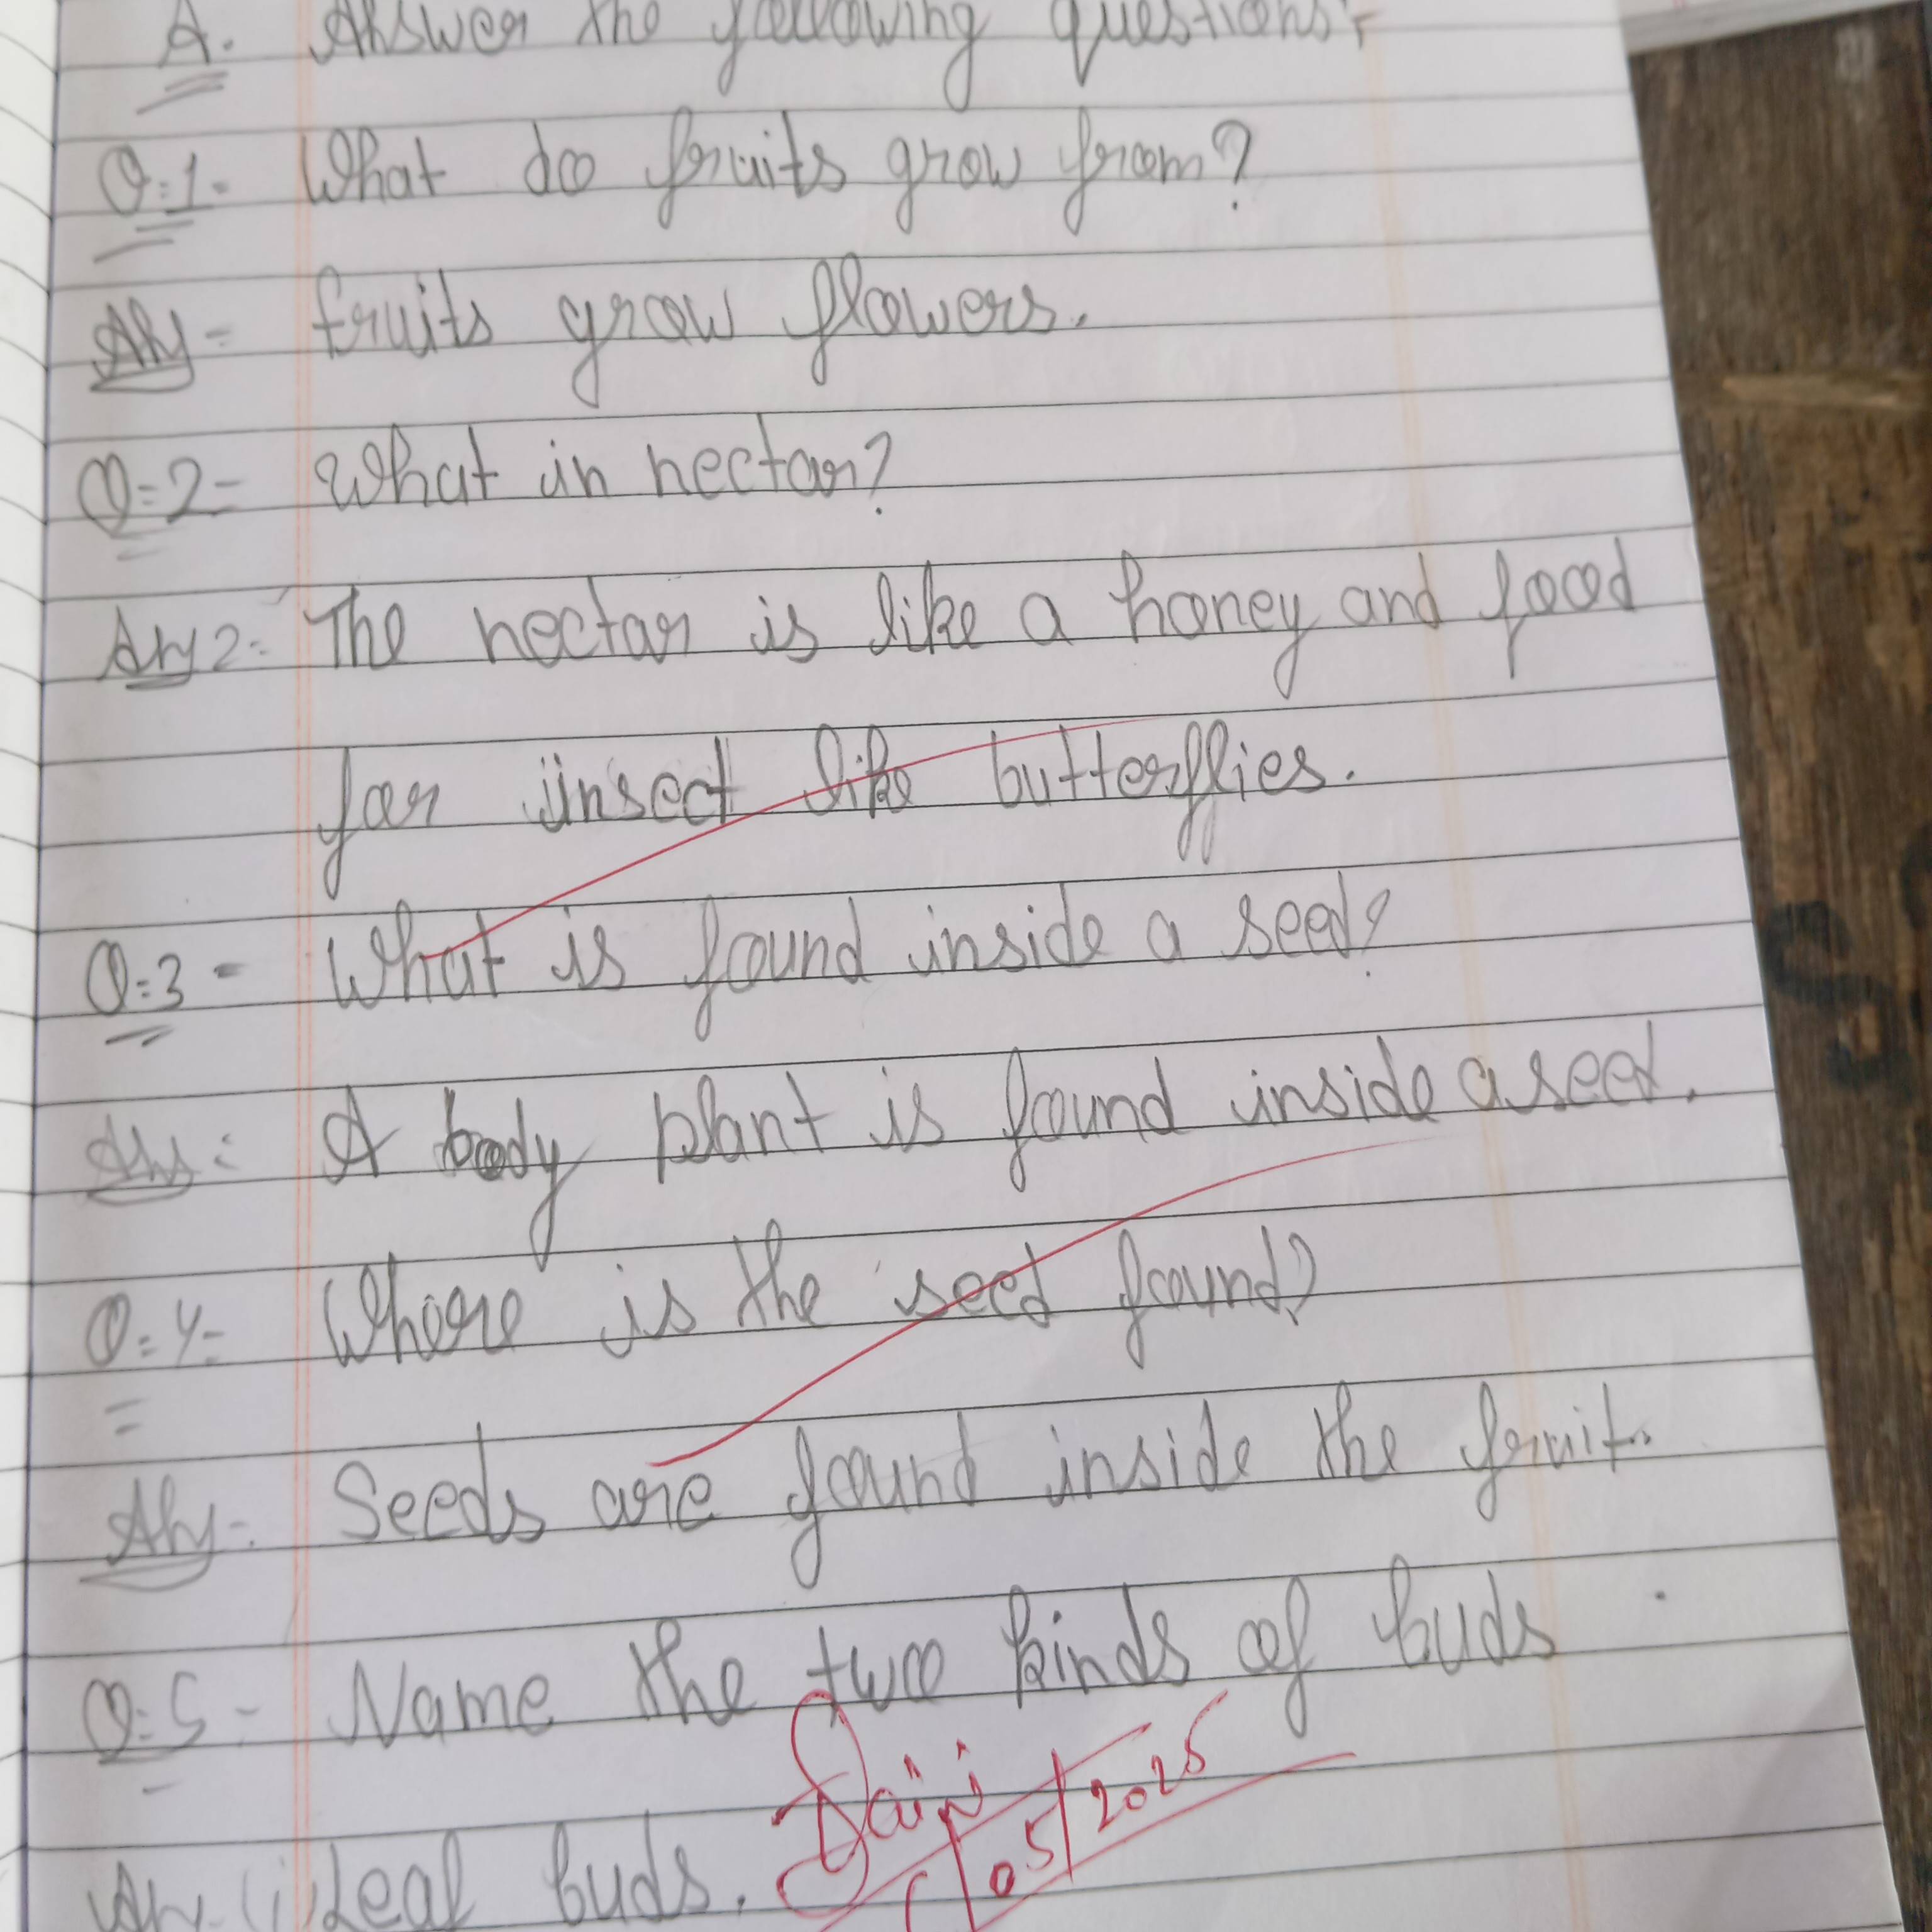 A. Answer the following questions:-
Q.1- What do fruits grow from?
Ans- fruits grow flowers.
Q.2- What in nectar?
Ans 2- The nectar is like a honey and food
for insect like butterflies.
Q.3- What is found inside a seed?
Ans: A body plant is found inside a seed.
Q.4- Where is the seed found?
Ans- Seeds are found inside the fruit.
Q.5- Name the two kinds of buds
Ans- (i) Leaf buds.
05/2025